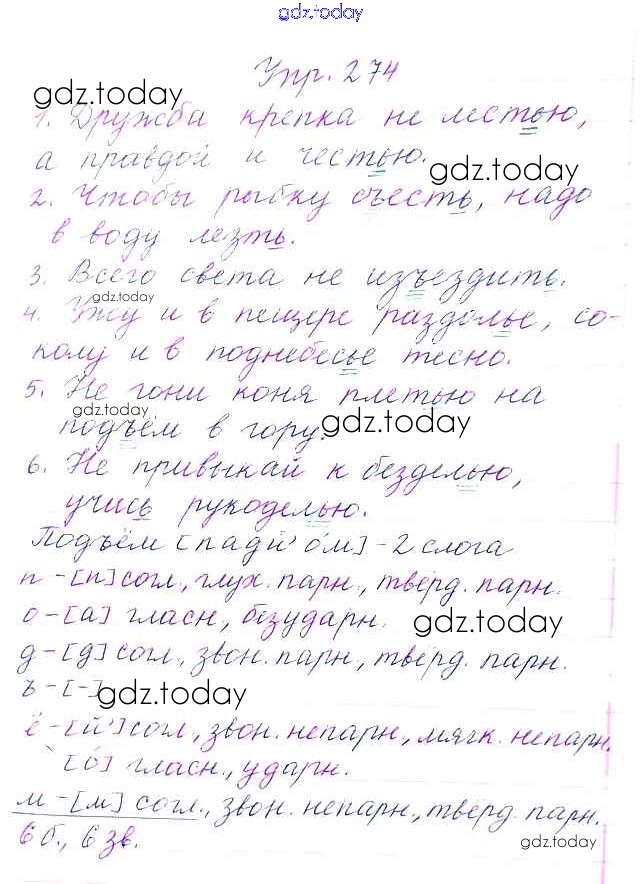 gdz.today
Упр. 274
gdz.today
1. Дружба крепка не лестью,
а правдой и честью.
gdz.today
2. Чтобы рыбку съесть, надо
в воду лезть.
3. Всего света не изъездить.
gdz.today
4. Ужу и в пещере раздолье, со-
колу и в поднебесье тесно.
5. Не гони коня плетью на
gdz.today
подъём в гору.
gdz.today
6. Не привыкай к безделью,
учись рукоделью.
Подъём [падй' о́м] - 2 слога
п - [п] согл., глух. парн., твёрд. парн.
о - [а] гласн., безударн.
gdz.today
д - [д] согл., звон. парн., твёрд. парн.
ъ - [-]
gdz.today
ё - [й'] согл., звон. непарн., мягк. непарн.
[о́] гласн., ударн.
м - [м] согл., звон. непарн., твёрд. парн.
6 б., 6 зв.
gdz.today